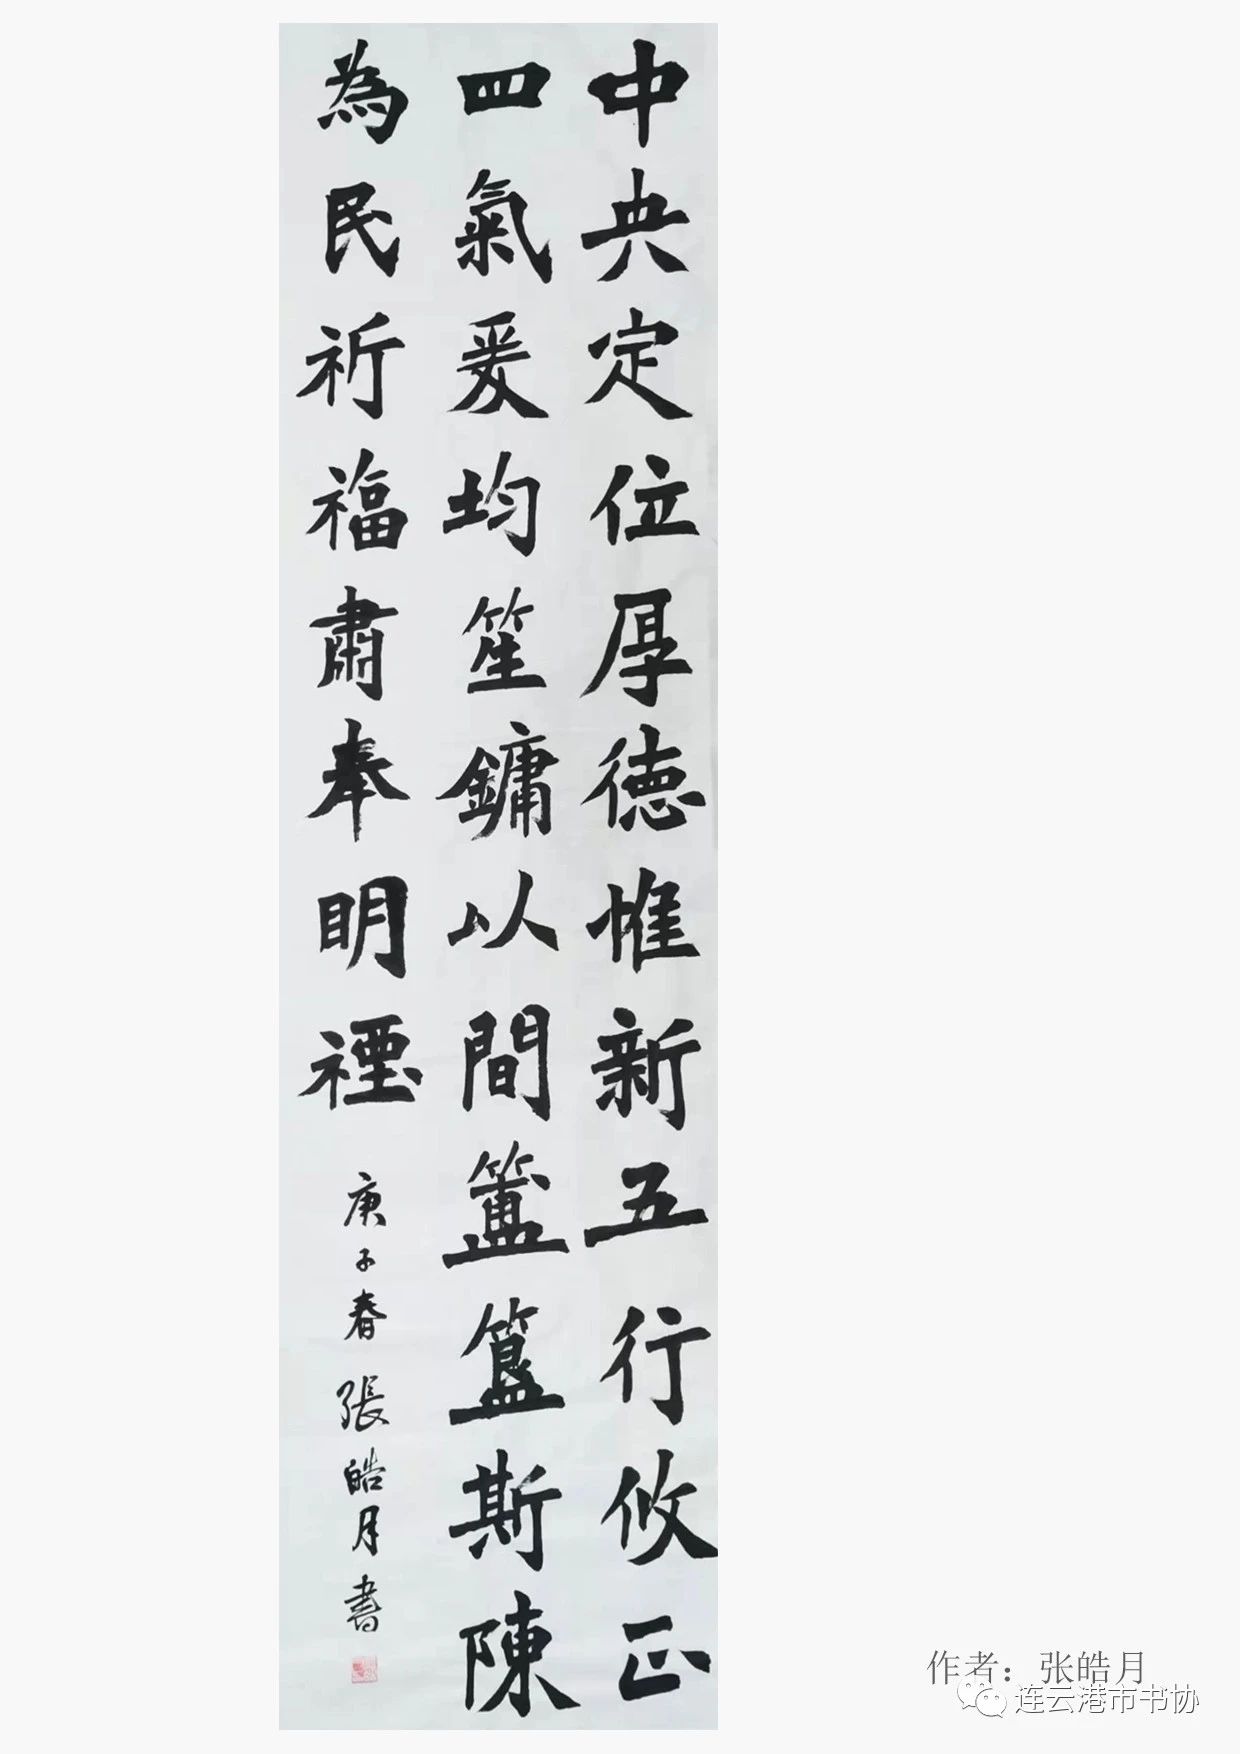 中央定位厚德惟新五行攸正
四氣爰均笙鏞以間簠簋斯陳
為民祈福肅奉明禋
庚子春張皓月書
作者：张皓月
连云港市书协